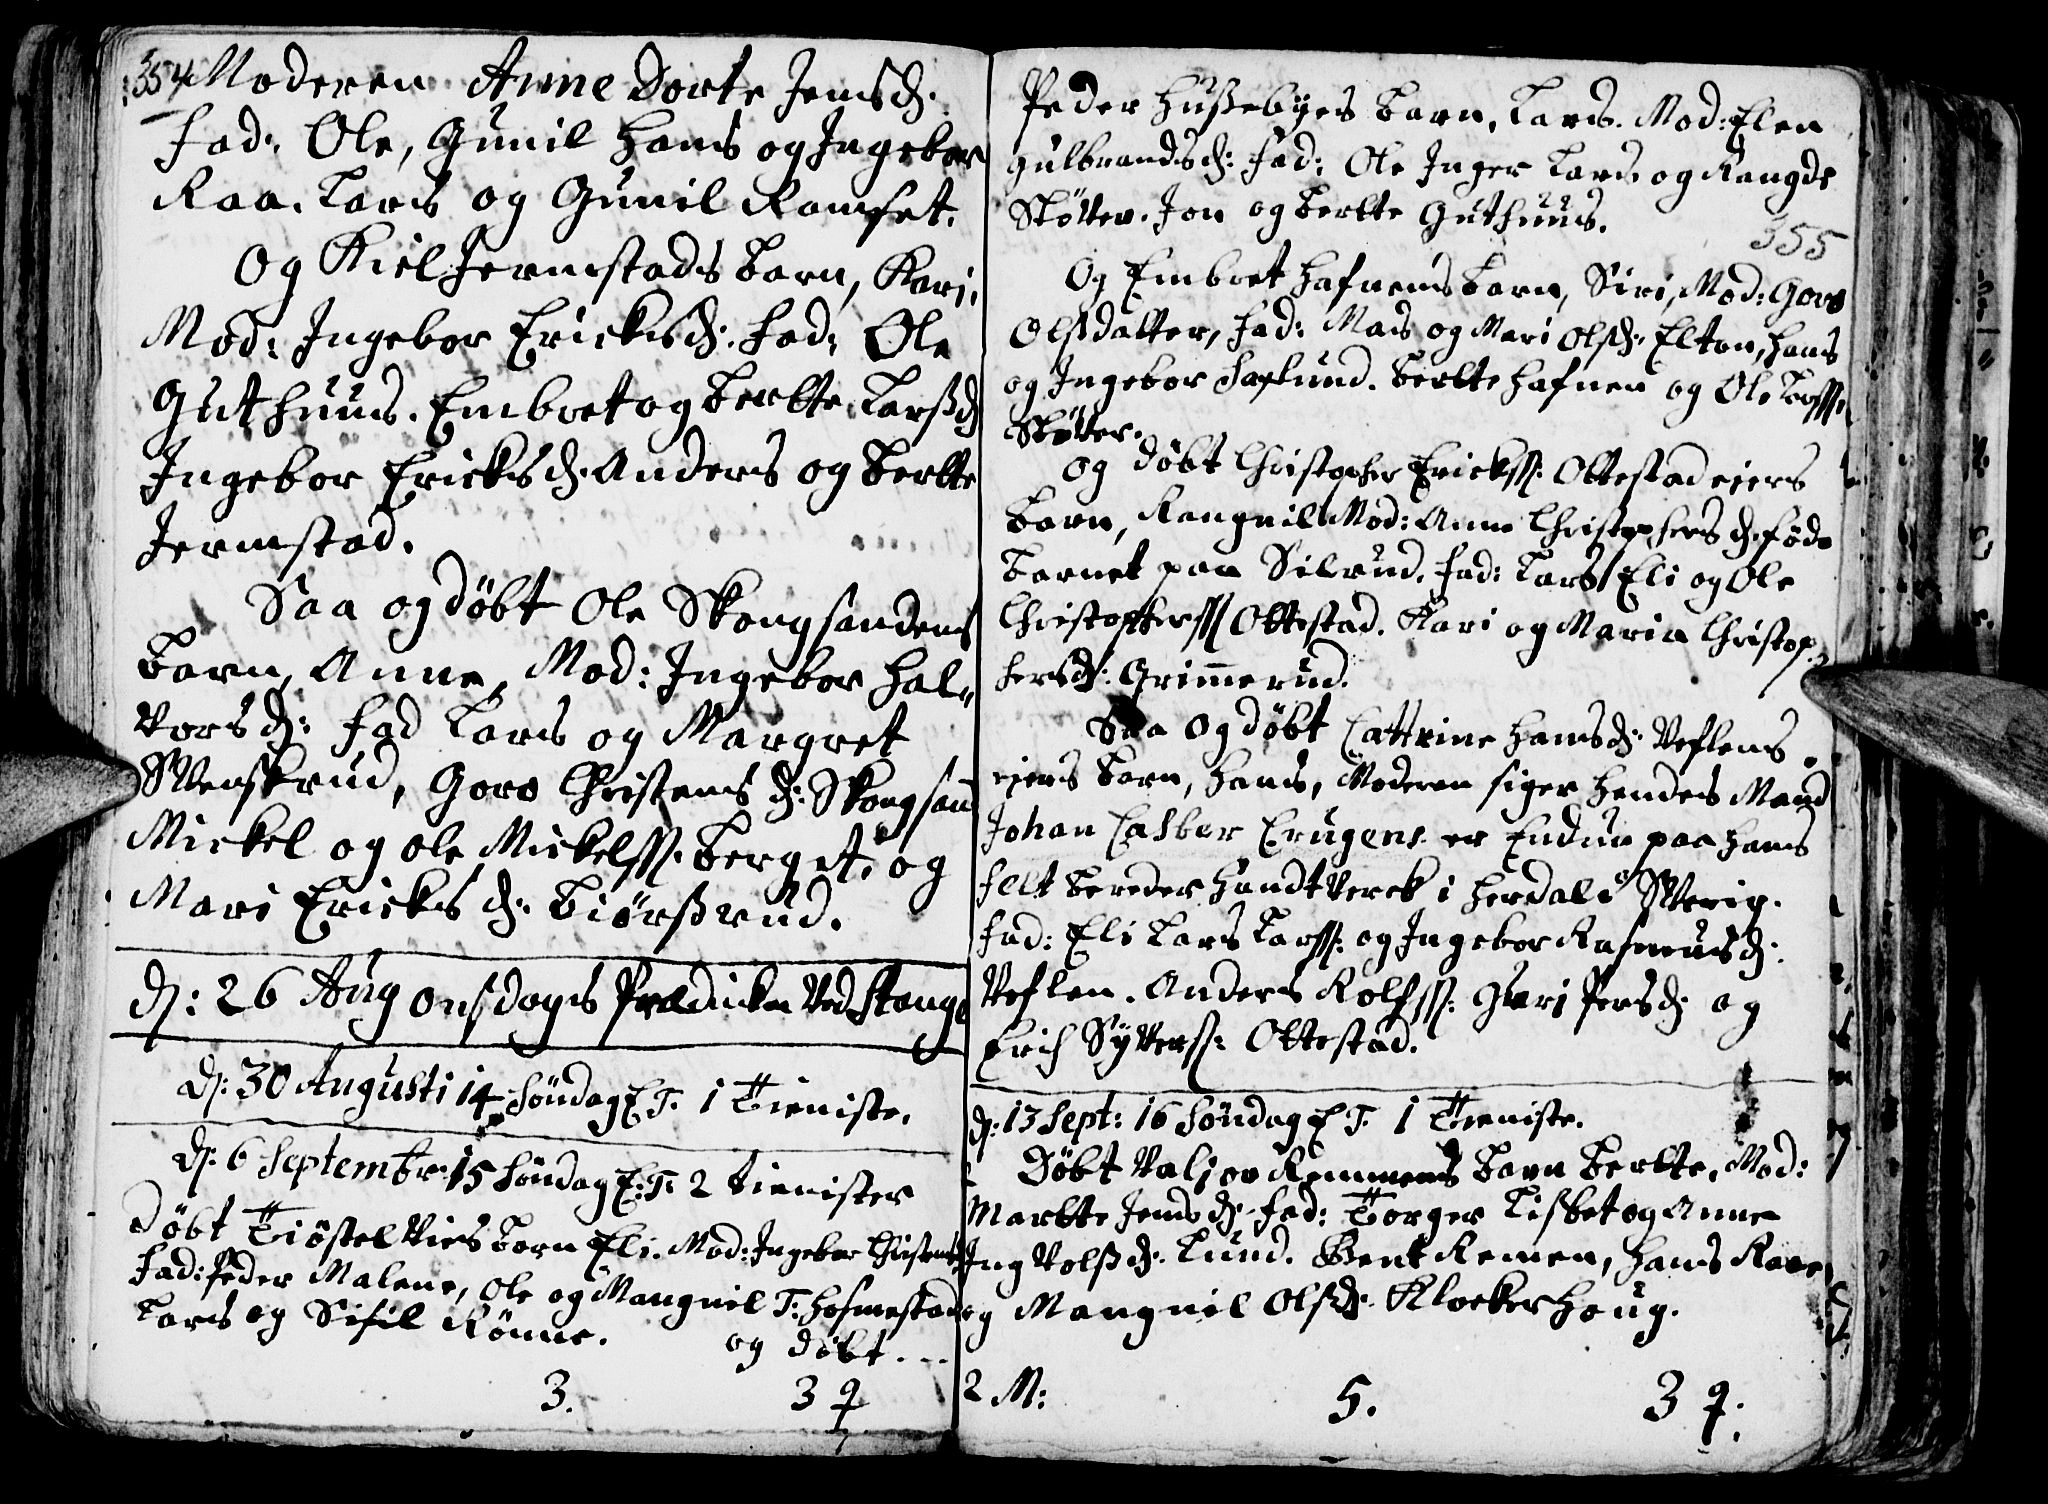 354 Moderen Anne Dorte Jensd:
Fad: Ole, Gunil Hans og Ingebor
Raa. Lars og Gunil Ramset.
Og Kiel Jermstads Barn, Kari,
Mod: Ingebor Ericksd: Fad: Ole
Guthuus. Embret og Berthe Larsd
Ingebor Ericksd: Anders og Berthe
Jermstad.
Saa og døbt Ole Skougsandens
Barn, Anne, Mod: Ingebor Hal-
vorsd: Fad Lars og Margret
Svenskrud, Goro Christens d: Skougsan
Mickel og Ole Mickelss: Berget, og
Mari Ericks d: Biørsrud.
d: 26 Aug onsdags Prædicken ved Stange
d: 30 Augusti 14 Søndag E. T. 1 Tieniste.
d: 6 Septembr: 15 Søndag E: T: 2 tienister
Døbt Tiøstel Vies Barn Eli. Mod: Ingebor Christensd
Fad: Peder Malene, Ole og Mangnil T: Hofmestad
Lars og Sisil Rønne.
og døbt . . .
3. 3 q
Peder Hussebyes Barn, Lars. Mod: Elen
Gulbrandsd: Fad: Ole Inger Lars og Rangde
Støtter. Jon og Berthe Guthuus.
355
Og Embret Hafnens Barn, Siri, Mod: Goro
Olsdatter, Fad: Mads og Mari Olsd: Elton, Hans
og Ingebor Haslund. Berthe Hafnen og Ole Larss
Støtter.
Og døbt Christopher Erickss: Ottestad eiers
Barn, Rangnil Mod: Anne Christophersd: føde
Barnet paa Silrud. Fad: Lars Eli og Ole
Christopherss Ottestad. Kari og Maria Christop-
hersd: Grimmerud.
Saa og døbt Cattrine Hansd: Veflens
eiers Barn, Hans, Moderen siger hendes Mand
Johan Casber Crugens er Endnu paa hans
Felt bereder Handtverck i Herdal i Sverig.
Fad: Eli Lars Larss: og Ingebor Rasmusd:
Veflen. Anders Rolfss: Guri Persd: og
Erich Syverss: Ottestad.
d: 13 Sept: 16 Søndag E T. 1 Tieniste.
Døbt Valior Remmens Barn Berthe, Mod:
Marthe Jensd: Fad: Torger Lisbet og Anne
Ingvolsd: Lund. Bent Remen, Hans Raae
og Mangnil Olsd: Klockerhoug.
2 M: 5. 3 q: